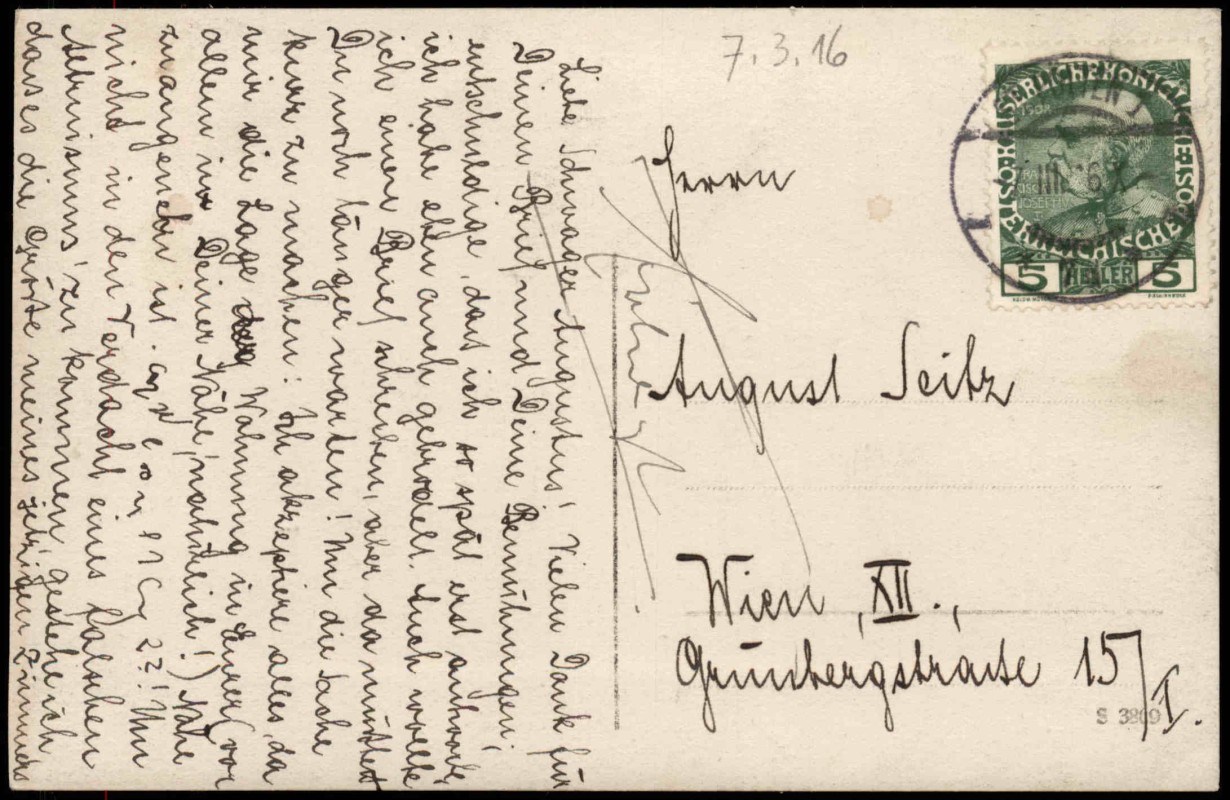 7.3.16
KAISERLICHE KÖNIGLICHE ÖSTERREICHISCHE
5 HELLER 5
Herrn
August Seitz
Wien, XII.,
Grünbergstraße 15/I.
S 3809
Liebe Schwager Augustus! Vielen Dank für
Deinen Brief und Deine Bemühungen;
entschuldige, daß ich so spät erst antworte
ich habe eben auch gebrodelt. Auch wollte
ich einen Brief schreiben, aber da müßtest
Du noch länger warten! Um die Sache
kurz zu machen: Ich akzeptiere alles, da
mir die Lage Wohnung in Eurer (vor
allem in Deiner Nähe, natürlich!) Nähe
zu angenehm ist. ??! Um
nicht in den Verdacht eines falschen
zu kommen, gestehe ich,
dass die Größe meines jetzigen Zimmers